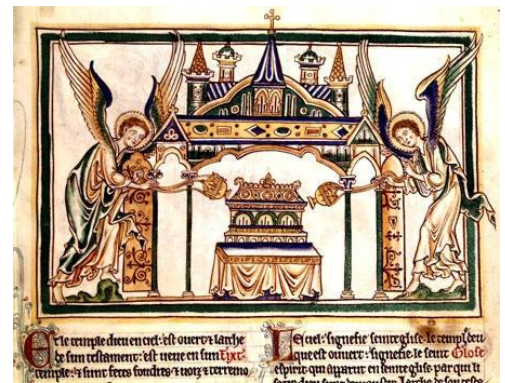 Et le temple dieu en ciel: est ouert & larche
de sun testament: est ueue en sun Tixt
temple: & sunt fetes foudres & uoiz & terremo
Le ciel: signefie seinte glise. le temple deu
que est ouuert: signefie le seint Glose
espirit qui aparut en seinte glise par qui li